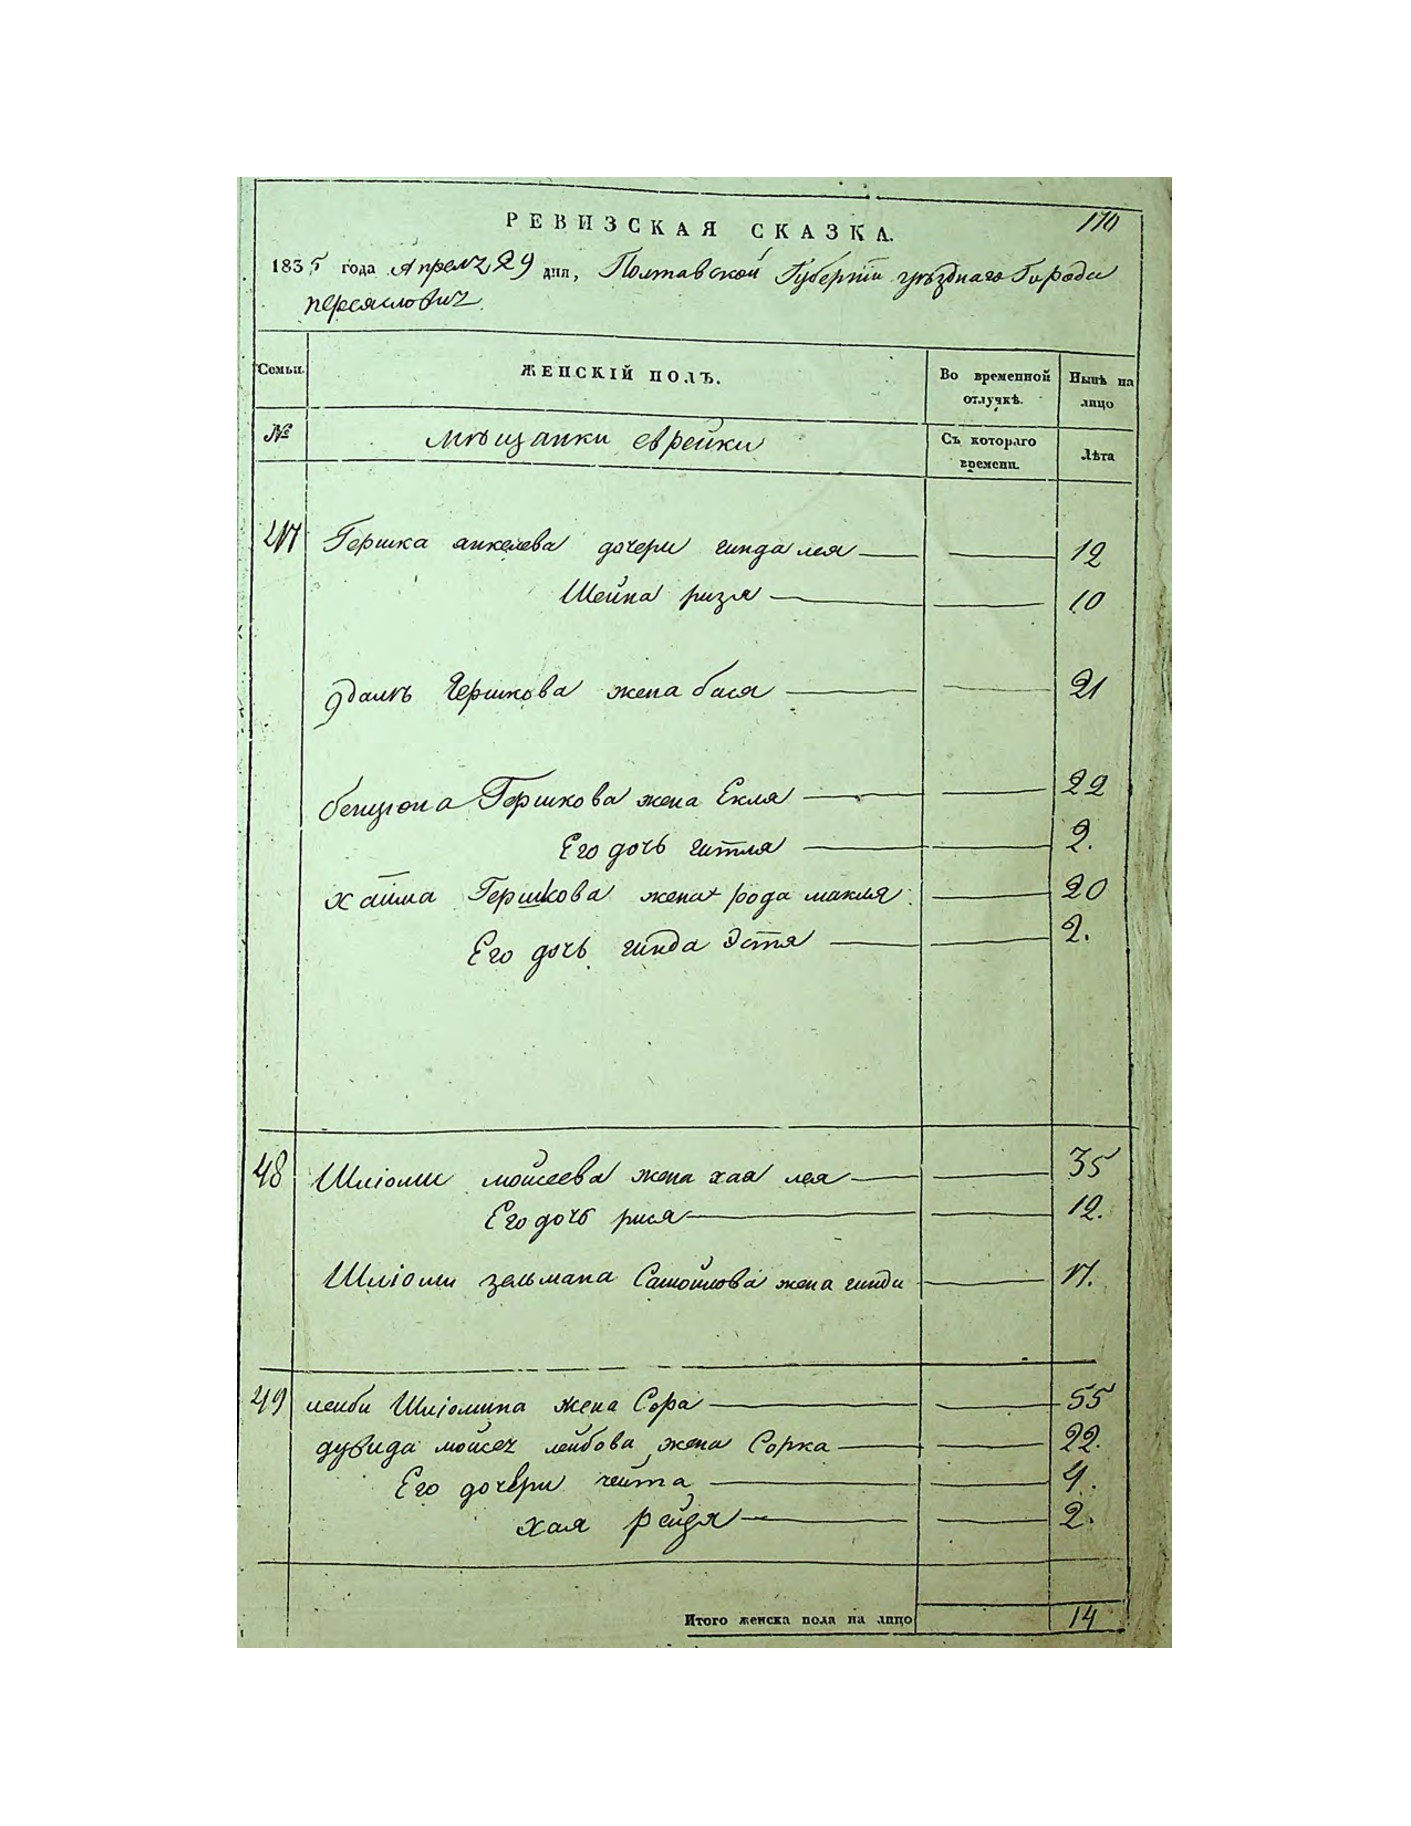 РЕВИЗСКАЯ СКАЗКА.
170
1835 года Апреля 29 дня, Полтавской Губернiи уѣзднаго Города
переяславля
Семьи.
ЖЕНСКIЙ ПОЛЪ.
Во временной отлучкѣ.
Нынѣ на лицо
№
мѣщанки еврейки
Съ котораго времени.
Лѣта
47 Гершка анкелева дочери гинда лея 12
Шейна ризя 10
Гершкова жена бася 21
бенцiона Гершкова жена Екля 22
Его дочь гитля 2.
хаима Гершкова жена рода макля 20
Его дочь гинда Эстя 2.
48 Шлiоми мойсеева жена хая лея 35
Его дочь рися 12.
Шлiоми зельмана Самойлова жена гинда 17.
49 лейби Шлiомина жена Сора 55
дувида мойсея лейбова жена Сорка 22.
Его дочери 4.
хая рейзя 2.
Итого женска пола на лицо 14